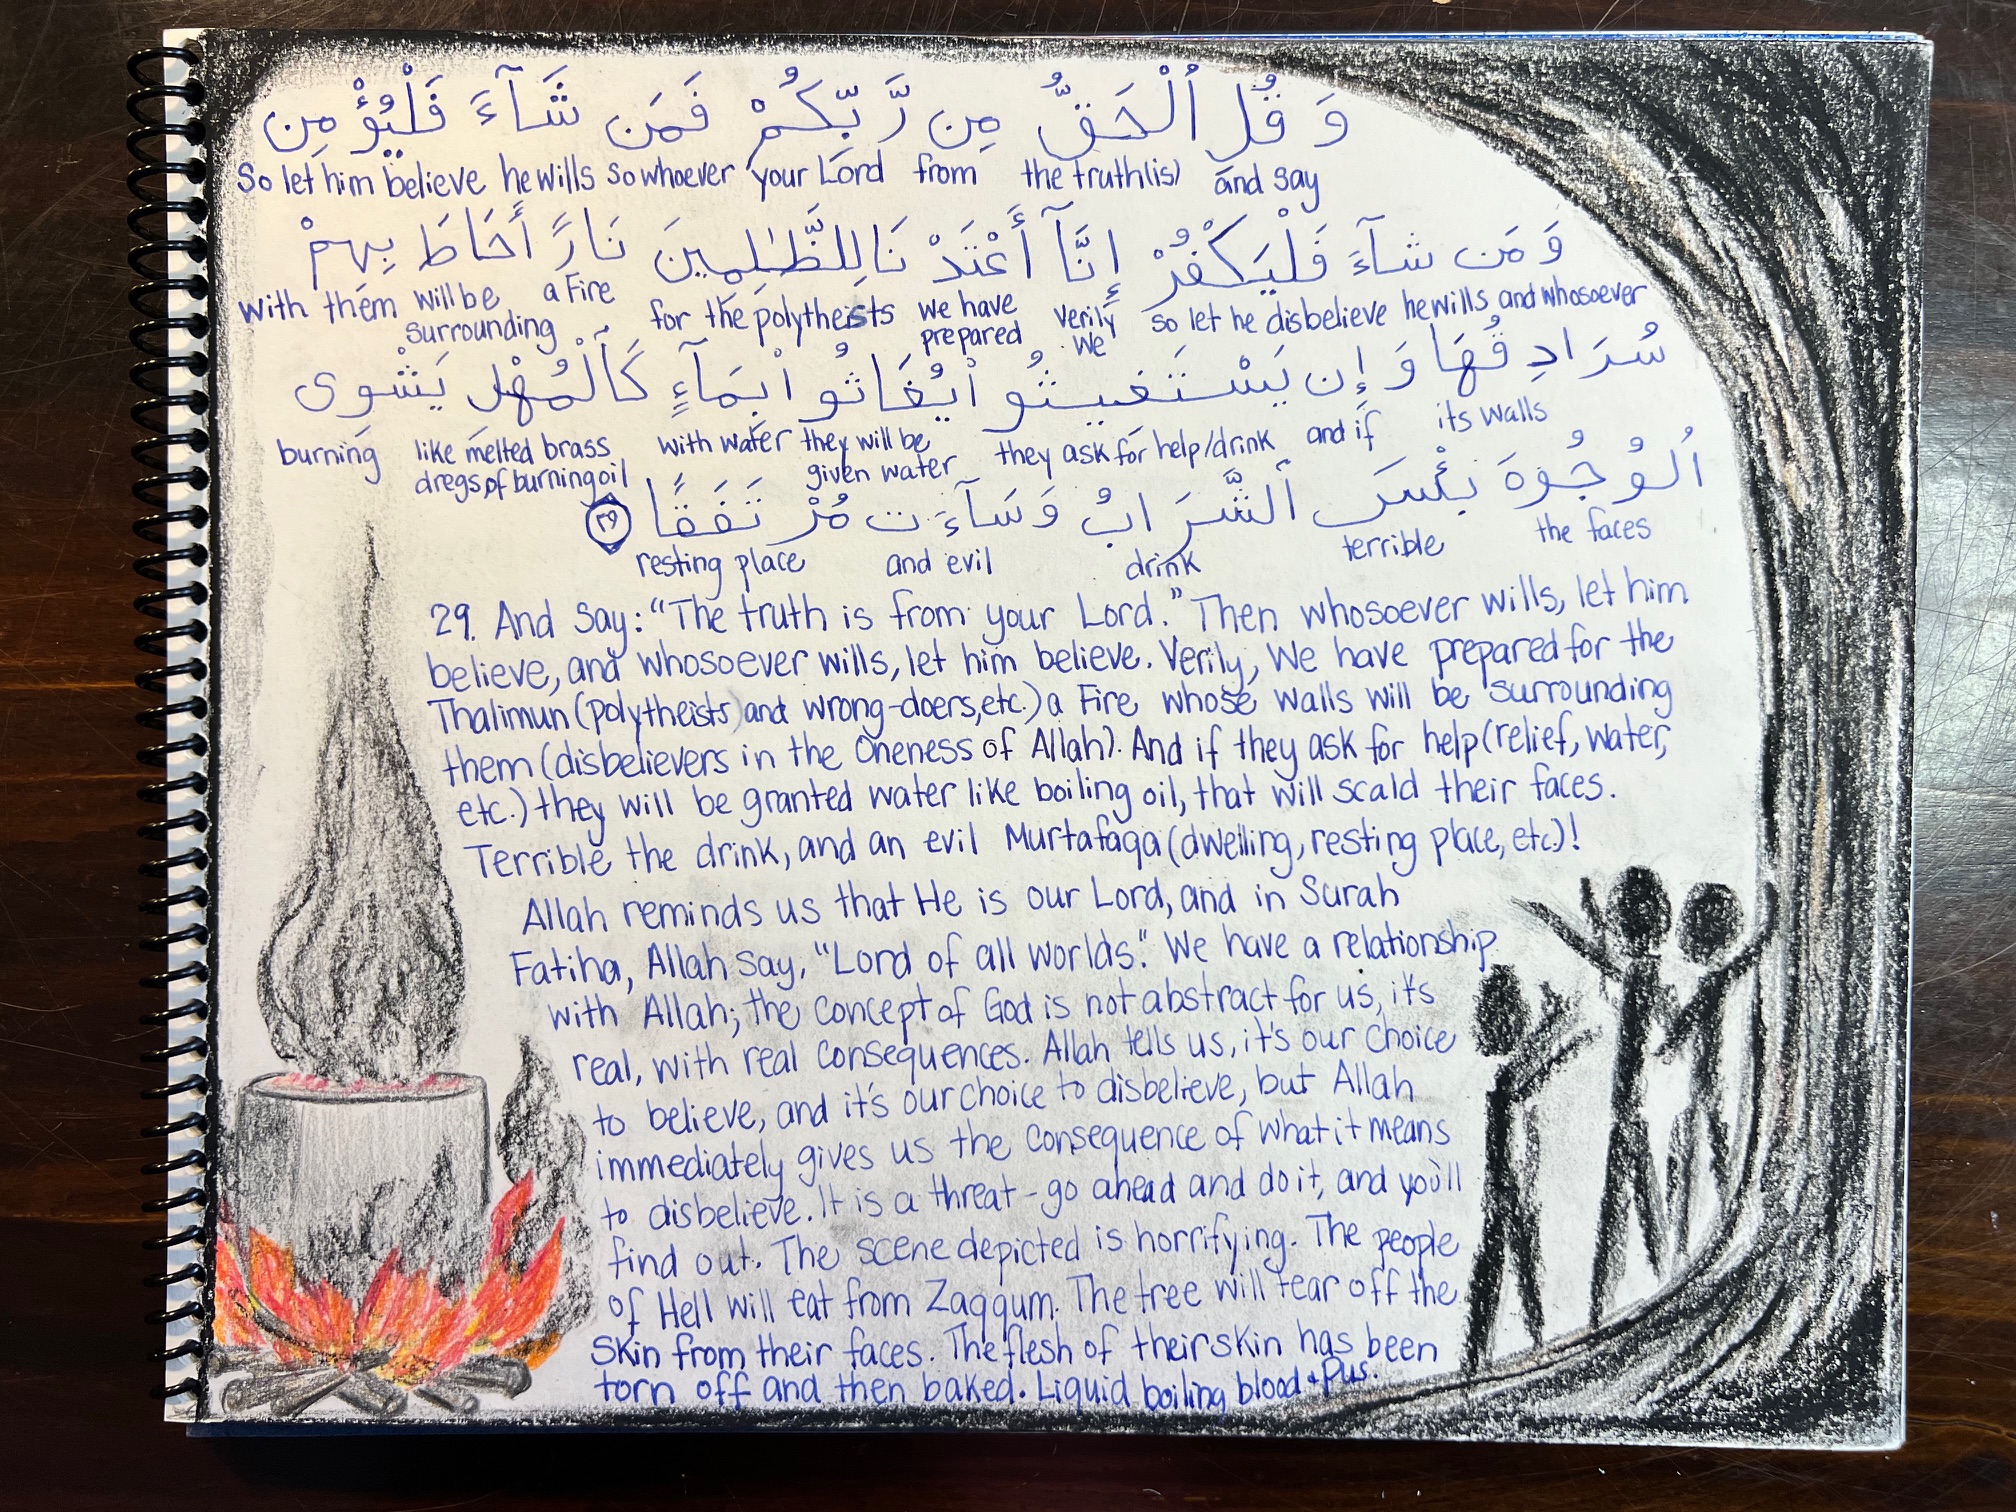 وَ قُلِ ٱلْحَقُّ مِن رَّبِّكُمْ فَمَن شَآءَ فَلْيُؤْمِن
So let him believe he wills so whoever your Lord from the truth(is) and say
وَ مَن شَآءَ فَلْيَكْفُرْ إِنَّآ أَعْتَدْ نَالِلظَّٰلِمِينَ نَارًا أَحَاطَ بِهِمْ
with them will be surrounding a Fire for the polytheists we have prepared verily we so let he disbelieve he wills and whosoever
سُرَادِقُهَا وَ إِن يَسْتَغِيثُو اْيُغَاثُو اْبِمَآءٍ كَٱلْمُهْلِ يَشْوِى
burning like melted brass dregs of burning oil with water they will be given water they ask for help/drink and if its walls
ٱلْوُجُوهَ بِئْسَ ٱلشَّرَابُ وَسَآءَت مُرْتَفَقًا ٢٩
resting place and evil drink terrible the faces
29. And Say: “The truth is from your Lord.” Then whosoever wills, let him
believe, and whosoever wills, let him believe. Verily, We have prepared for the
Thalimun (polytheists) and wrong-doers, etc.) a Fire whose walls will be surrounding
them (disbelievers in the Oneness of Allah). And if they ask for help (relief, water,
etc.) they will be granted water like boiling oil, that will scald their faces.
Terrible the drink, and an evil Murtafaqa (dwelling, resting place, etc.)!
Allah reminds us that He is our Lord, and in Surah
Fatiha, Allah say, “Lord of all worlds.” We have a relationship
with Allah; the concept of God is not abstract for us, it's
real, with real consequences. Allah tells us, it's our choice
to believe, and it's our choice to disbelieve, but Allah
immediately gives us the consequence of what it means
to disbelieve. It is a threat - go ahead and do it, and you'll
find out. The scene depicted is horrifying. The people
of Hell will eat from Zaqqum. The tree will tear off the
skin from their faces. The flesh of their skin has been
torn off and then baked. Liquid boiling blood + Pus.